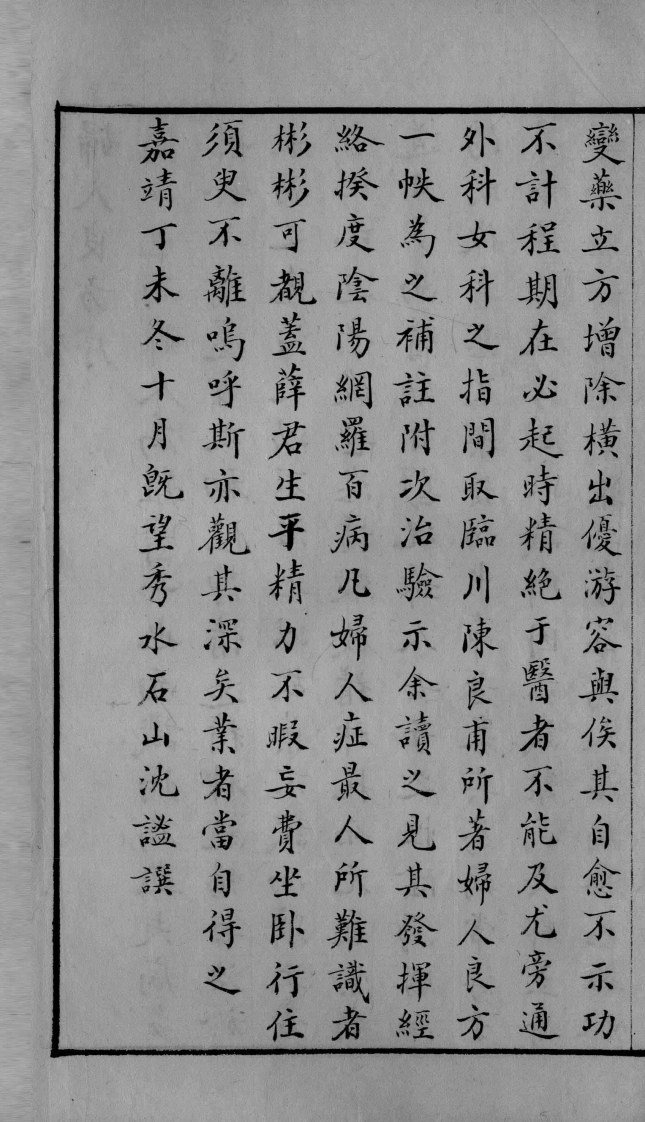 變藥立方增除橫出優游容與俟其自愈不示功
不計程期在必起時精絶于醫者不能及尤旁通
外科女科之指間取臨川陳良甫所著婦人良方
一帙為之補註附次治驗示余讀之見其發揮經
絡揆度陰陽網羅百病凡婦人症最人所難識者
彬彬可覩蓋薛君生平精力不暇妄費坐卧行住
須臾不離嗚呼斯亦觀其深矣業者當自得之
嘉靖丁未冬十月旣望秀水石山沈謐譔